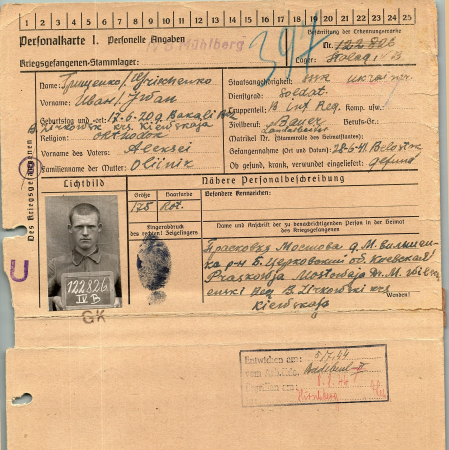 1 2 3 4 5 6 7 8 9 10 11 12 13 14 15 16 17 18 19 20 21 22 23 24 25
Personalkarte I. Personelle Angaben
IV B Mühlberg
Beschriftung der Erkennungsmarke
Nr. 122826
Kriegsgefangenen-Stammlager:
Lager: Stalag IV B
Des Kriegsgefangenen
Name: Грищенко / Grischenko
Vorname: Иван / Iwan
Geburtstag und -ort: 17.6.20
Religion: ortodox
Vorname des Vaters: Aleksei
Familienname der Mutter: Oliinik
Staatsangehörigkeit:
Dienstgrad: Soldat
Truppenteil: 13 Inf Reg. Komp. usw.:
Zivilberuf: Bauer Berufs-Gr.:
Matrikel Nr. (Stammrolle des Heimatstaates):
Gefangennahme (Ort und Datum): 28-6-41. Belostok
Ob gesund, krank, verwundet eingeliefert: gesund
Lichtbild
Nähere Personalbeschreibung
Größe
Haarfarbe
Besondere Kennzeichen:
175
Rot.
Fingerabdruck
des rechten! Zeigefingers
Name und Anschrift der zu benachrichtigenden Person in der Heimat
des Kriegsgefangenen
Прасковья Мостовая
р-н Б. Церковский об. Киевская
Praskowja Mostowaja
Kiewskaja
Wenden!
122826
IV B
U
GK
Entwichen am: 5/7.44
vom Arb.Kdo. Radebeul
Ergriffen am:
Hirschberg